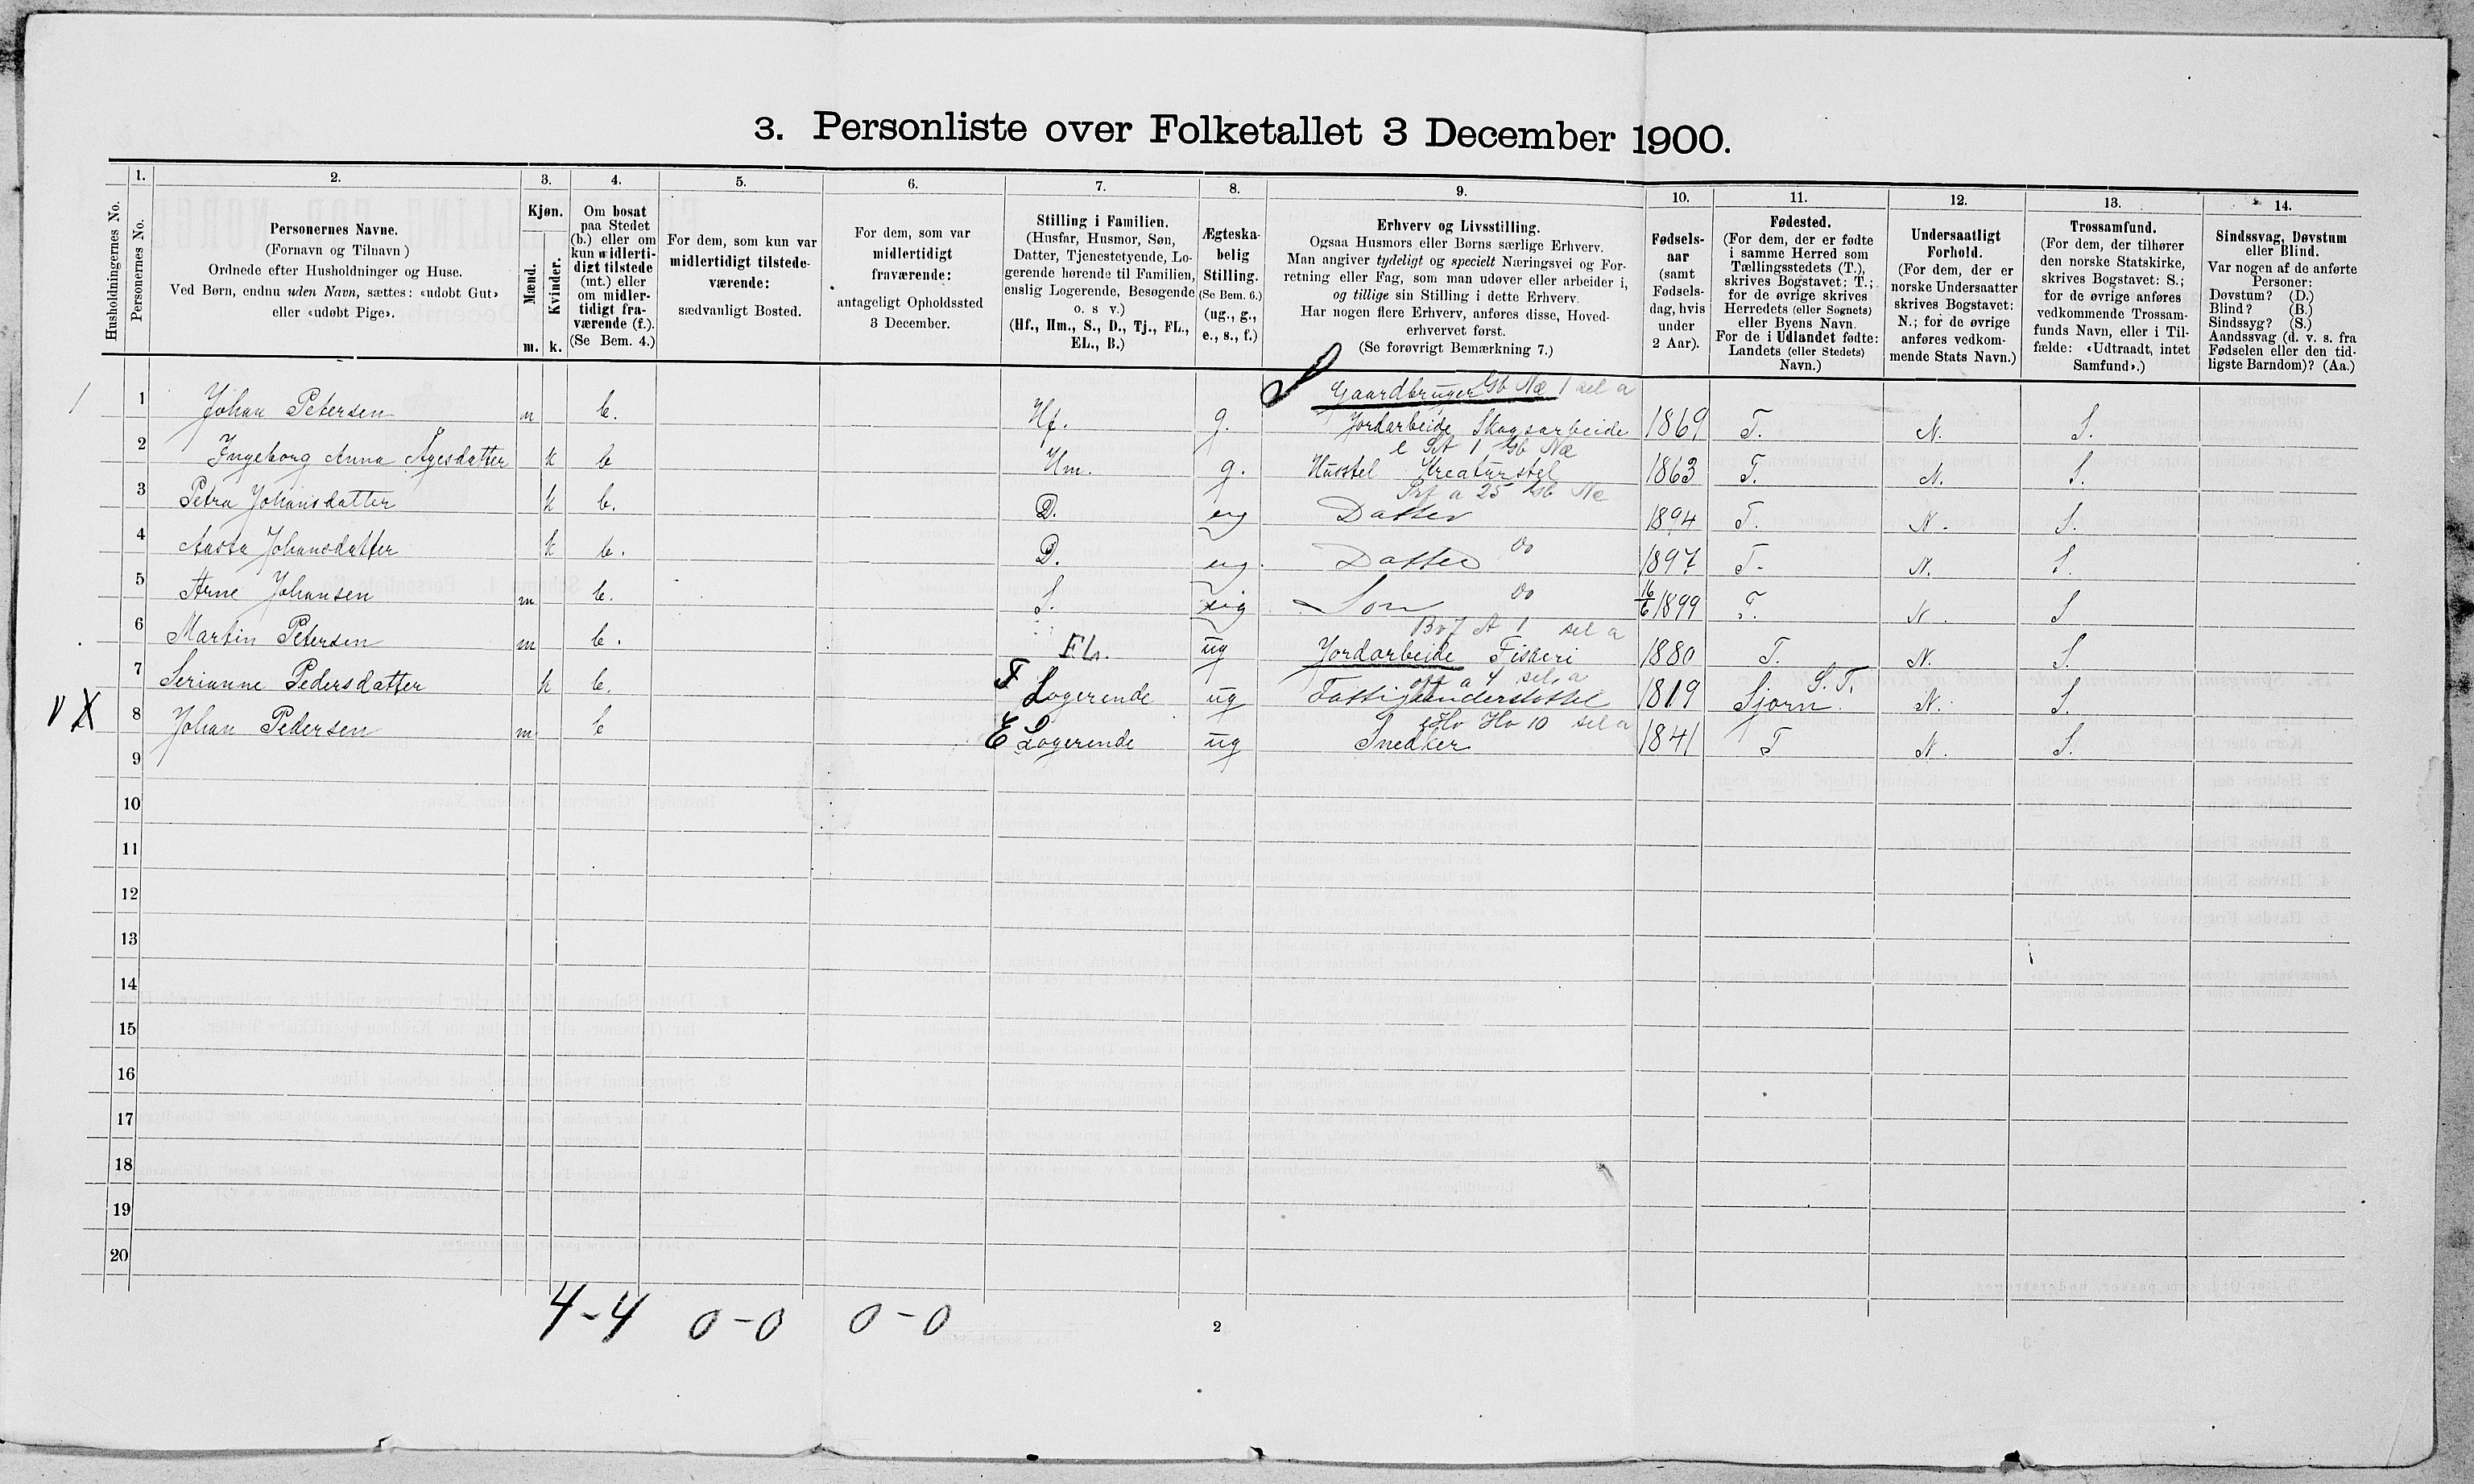 3. Personliste over Folketallet 3 December 1900.
Husholdningernes No.
1. Personernes No.
2. Personernes Navne.
(Fornavn og Tilnavn)
Ordnede efter Husholdninger og Huse.
Ved Børn, endnu uden Navn, sættes: «udøbt Gut»
eller «udøbt Pige».
3. Kjøn.
Mænd. Kvinder.
m. k.
4. Om bosat
paa Stedet
(b.) eller om
kun midlerti-
digt tilstede
(mt.) eller
om midler-
tidigt fra-
værende (f.).
(Se Bem. 4.)
5. For dem, som kun var
midlertidigt tilstede-
værende:
sædvanligt Bosted.
6. For dem, som var
midlertidigt
fraværende:
antageligt Opholdssted
3 December.
7. Stilling i Familien.
(Husfar, Husmor, Søn,
Datter, Tjenestetyende, Lo-
gerende hørende til Familien,
enslig Logerende, Besøgende
o. s v.)
(Hf., Hm., S., D., Tj., FL.,
EL., B.)
8. Ægteska-
belig
Stilling.
(Se Bem. 6.)
(ug., g.,
e., s., f.)
9. Erhverv og Livsstilling.
Ogsaa Husmors eller Børns særlige Erhverv.
Man angiver tydeligt og specielt Næringsvei og For-
retning eller Fag, som man udøver eller arbeider i,
og tillige sin Stilling i dette Erhverv.
Har nogen flere Erhverv, anføres disse, Hoved-
erhvervet først.
(Se forøvrigt Bemærkning 7.)
10. Fødsels-
aar
(samt
Fødsels-
dag, hvis
under
2 Aar).
11. Fødested.
(For dem, der er fødte
i samme Herred som
Tællingsstedets (T.),
skrives Bogstavet: T.;
for de øvrige skrives
Herredets (eller Sognets)
eller Byens Navn.
For de i Udlandet fødte:
Landets (eller Stedets)
Navn.)
12. Undersaatligt
Forhold.
(For dem, der er
norske Undersaatter
skrives Bogstavet:
N.; for de øvrige
anføres vedkom-
mende Stats Navn.)
13. Trossamfund.
(For dem, der tilhører
den norske Statskirke,
skrives Bogstavet: S.;
for de øvrige anføres
vedkommende Trossam-
funds Navn, eller i Til-
fælde: «Udtraadt, intet
Samfund».)
14. Sindssvag, Døvstum
eller Blind.
Var nogen af de anførte
Personer:
Døvstum? (D.)
Blind? (B.)
Sindssyg? (S.)
Aandssvag (d. v. s. fra
Fødselen eller den tid-
ligste Barndom)? (Aa.)
Gaardbruger Gb Næ 1 sel a
1 1 Johan Petersen m b. Hf. g. Jordarbeide Skogsarbeide 1869 T. N. S.
2 Ingeborg Anna Ågesdatter k b Hm. g. Husstel Kreaturstel 1863 T. N. S.
3 Petra Johansdatter k b. D. ug Datter 1894 T. N. S.
4 Aasta Johansdatter k b. D. ug. Datter Do 1897 T. N. S.
5 Arne Johansen m b. S. ug Søn Do 16/6 1899 T. N. S
6 Martin Petersen m b. FL. ug Jordarbeide Fiskeri 1880 T. N. S.
7 Serianne Pedersdatter k b. F Logerende ug Fattigunderstottet 1819 Sjørn. S. T. N. S.
8 Johan Pedersen m b E Logerende ug Snedker 1841 T N. S.
9
10
11
12
13
14
15
16
17
18
19
20
4-4 0-0 0-0
2